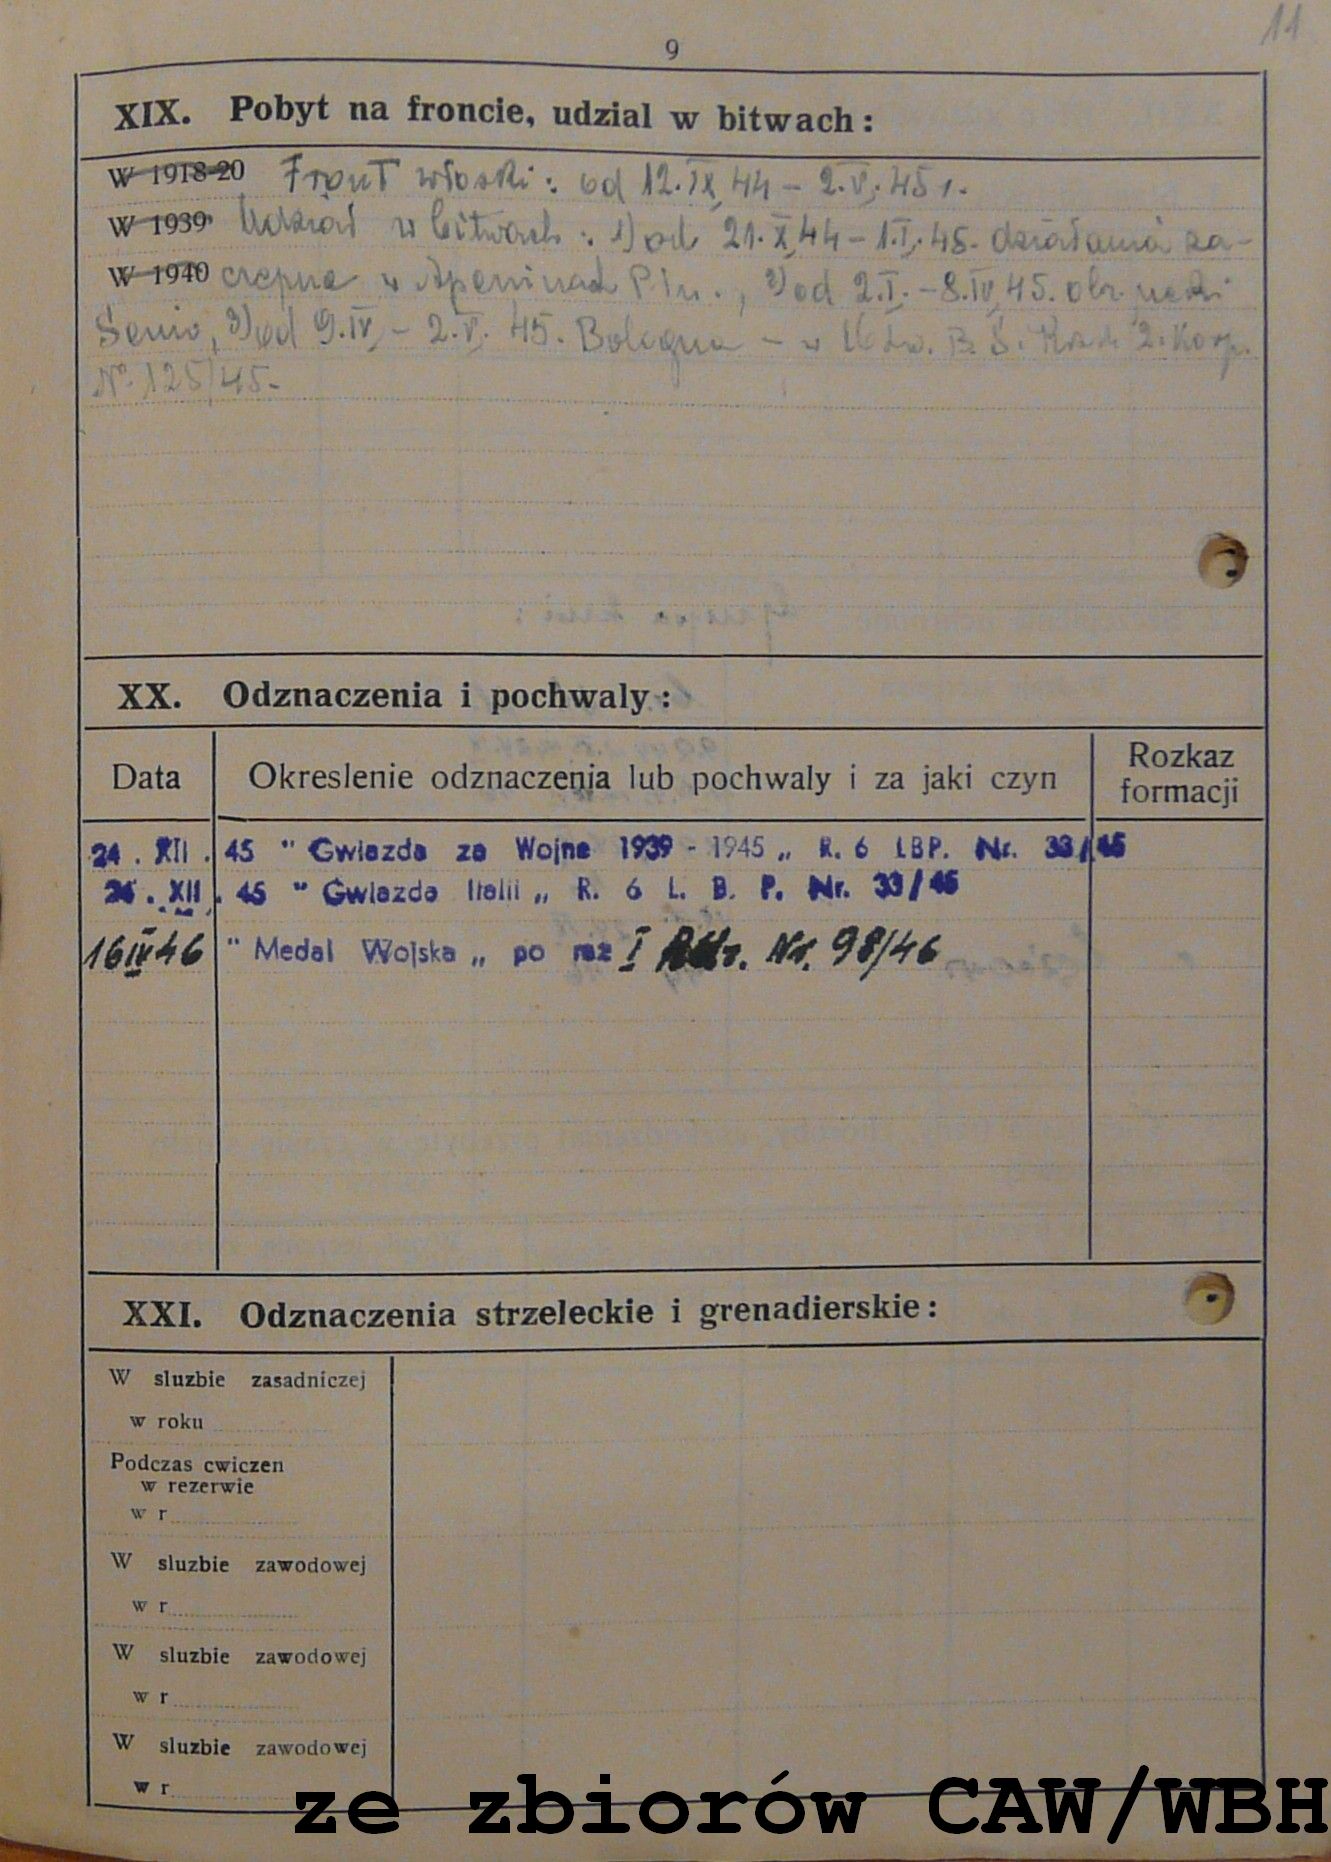 11
9
XIX. Pobyt na froncie, udzial w bitwach:
W 1918-20 Front włoski: od 12.IX.44 – 2.V.45 r.
W 1939 Udział w bitwach: 1) od 21.X.44 – 1.I.45. działania za-
W 1940 czepne w Apeninach Płn., 2) od 2.I. – 8.IV.45. obr. rzeki
Senio, 3) od 9.IV. – 2.V. 45. Bologna – w 16 B. S. 2. Korp.
Nº 125/45.
XX. Odznaczenia i pochwaly:
Data Okreslenie odznaczenia lub pochwaly i za jaki czyn Rozkaz formacji
24. XII. 45 " Gwiazda za Wojne 1939 - 1945 „ R. 6 LBP. Nr. 33/45
24. XII. 45 " Gwiazda Italii „ R. 6 L. B. P. Nr. 33/45
16 IV 46 " Medal Wojska „ po raz I Nr. 98/46
XXI. Odznaczenia strzeleckie i grenadierskie:
W sluzbie zasadniczej
w roku
Podczas cwiczen
w rezerwie
w r
W sluzbie zawodowej
w r
W sluzbie zawodowej
w r
W sluzbie zawodowej
w r
ze zbiorów CAW/WBH